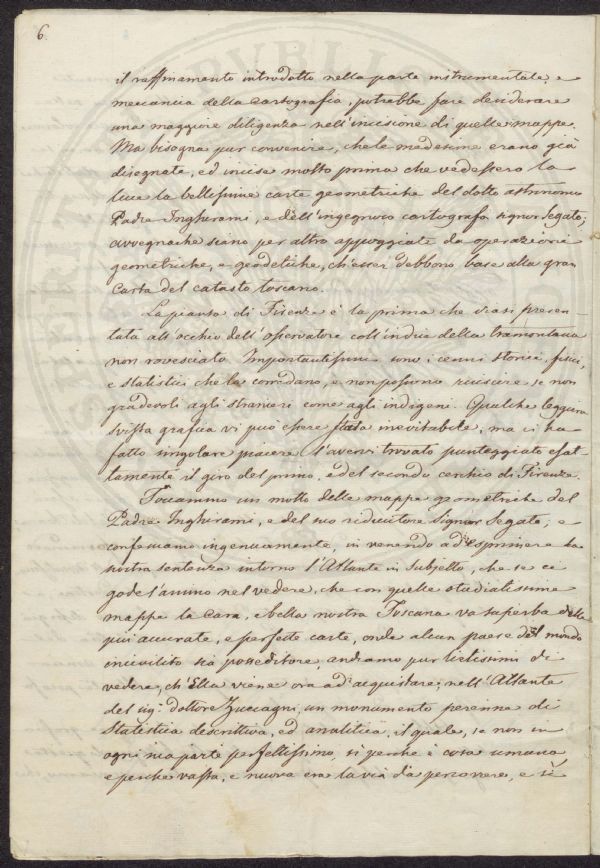 6.
il raffinamento introdotto nella parte instrumentale, e
meccanica della Cartografia, potrebbe fare desiderare
una maggiore diligenza nell'incisione di quelle mappe.
Ma bisogna pur convenire, che le medesime erano già
disegnate, ed incise molto prima che vedessero la
luce le bellissime carte geometriche del dotto astronomo
Padre Inghirami, e dell'ingegnoso cartografo signor Segato;
avvegnachè siano per altro appoggiate da operazioni
geometriche, e geodetiche, ch'esser debbono base alla gran
Carta del catasto toscano.
La pianta di Firenze è la prima che siasi presen-
tata all'occhio dell'osservatore coll'indice della tramontana
non rovesciato. Importantissimi sono i cenni storici, fisici,
e statistici che la corredano, e non possono riuscire se non
gradevoli agli stranieri come agli indigeni. Qualche leggiera
svista grafica vi può essere stata inevitabile, ma ci ha
fatto singolare piacere l'avervi trovato punteggiato esat-
tamente il giro del primo, e del secondo cerchio di Firenze.
Toccammo un motto delle mappe geometriche del
Padre Inghirami, e del suo riduttore Signor Segato; e
confessiamo ingenuamente, in venendo ad esprimere la
nostra sentenza intorno l'Atlante in subjetto, che se ci
gode l'animo nel vedere, che con quelle studiatissime
mappe la cara, e bella nostra Toscana va superba delle
più accurate, e perfette carte, onde alcun paese del mondo
incivilito sia posseditore, andiamo pur lietissimi di
vedere, ch'Ella viene ora ad acquistare, nell'Atlante
del sig: dottore Zuccagni, un monumento perenne di
Statistica descrittiva, ed analitica, il quale, se non in
ogni sua parte perfettissimo, sì perchè è cosa umana,
e perchè vasta, e nuova era la via da percorrere, e sì